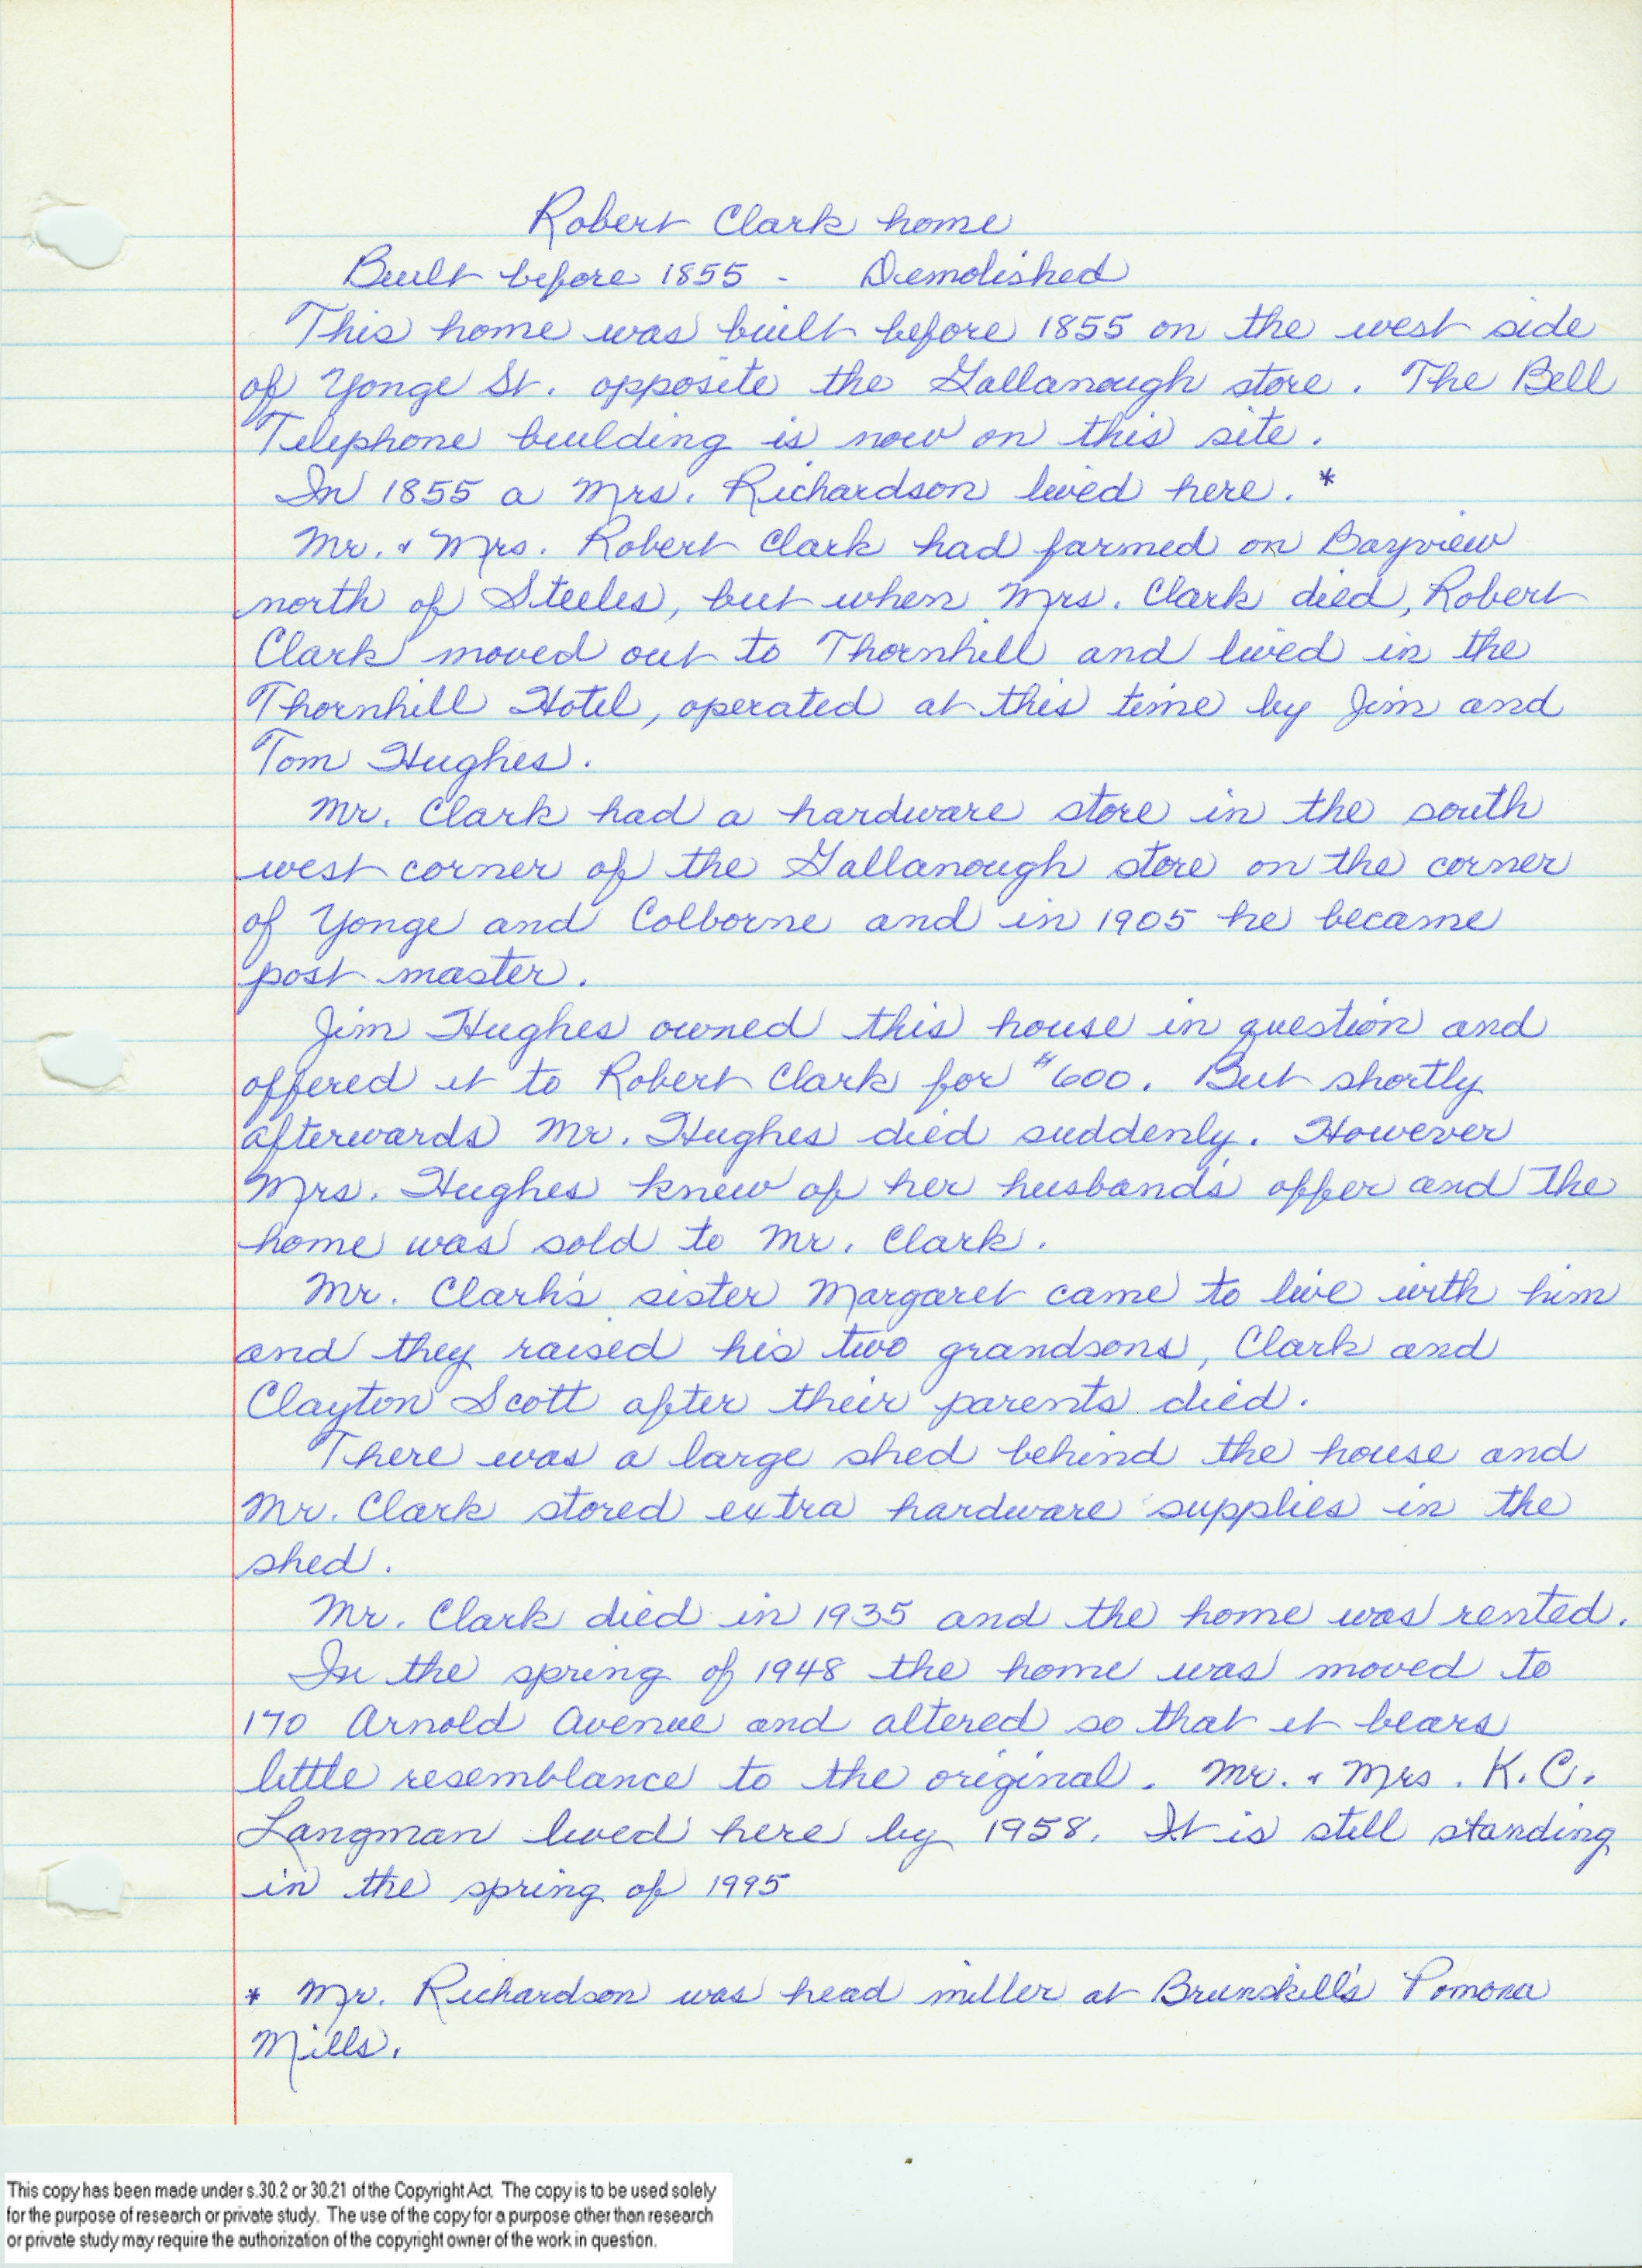 Robert Clark home
Built before 1855 - Demolished
This home was built before 1855 on the west side
of Yonge St. opposite the Gallanough store. The Bell
Telephone building is now on this site.
In 1855 a Mrs. Richardson lived here. *
Mr. & Mrs. Robert Clark had farmed on Bayview
north of Steeles, but when Mrs. Clark died, Robert
Clark moved out to Thornhill and lived in the
Thornhill Hotel, operated at this time by Jim and
Tom Hughes.
Mr. Clark had a hardware store in the south
west corner of the Gallanough store on the corner
of Yonge and Colborne and in 1905 he became
post master.
Jim Hughes owned this house in question and
offered it to Robert Clark for $600. But shortly
afterwards Mr. Hughes died suddenly. However
Mrs. Hughes knew of her husband's offer and the
home was sold to Mr. Clark.
Mr. Clark's sister Margaret came to live with him
and they raised his two grandsons, Clark and
Clayton Scott after their parents died.
There was a large shed behind the house and
Mr. Clark stored extra hardware supplies in the
shed.
Mr. Clark died in 1935 and the home was rented.
In the spring of 1948 the home was moved to
170 Arnold Avenue and altered so that it bears
little resemblance to the original. Mr. & Mrs. K.C.
Langman lived here by 1958. It is still standing
in the spring of 1995
* Mr. Richardson was head miller at Brunskill's Pomona
Mills.
This copy has been made under s.30.2 or 30.21 of the Copyright Act. The copy is to be used solely
for the purpose of research or private study. The use of the copy for a purpose other than research
or private study may require the authorization of the copyright owner of the work in question.